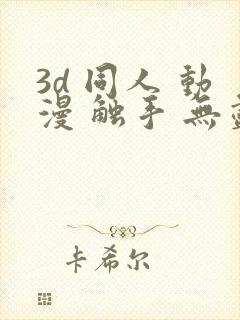 3d 同人 動
漫 触手 無
卡希尔